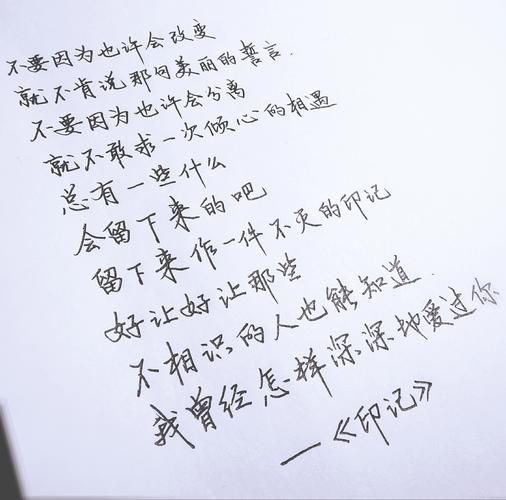 不要因为也许会改变
就不肯说那句美丽的誓言.
不要因为也许会分离
就不敢求一次倾心的相遇
总有一些什么
会留下来的吧
留下来作一件不灭的印记
好让好让那些
不相识的人也能知道.
我曾经怎样深深地爱过你
—《印记》